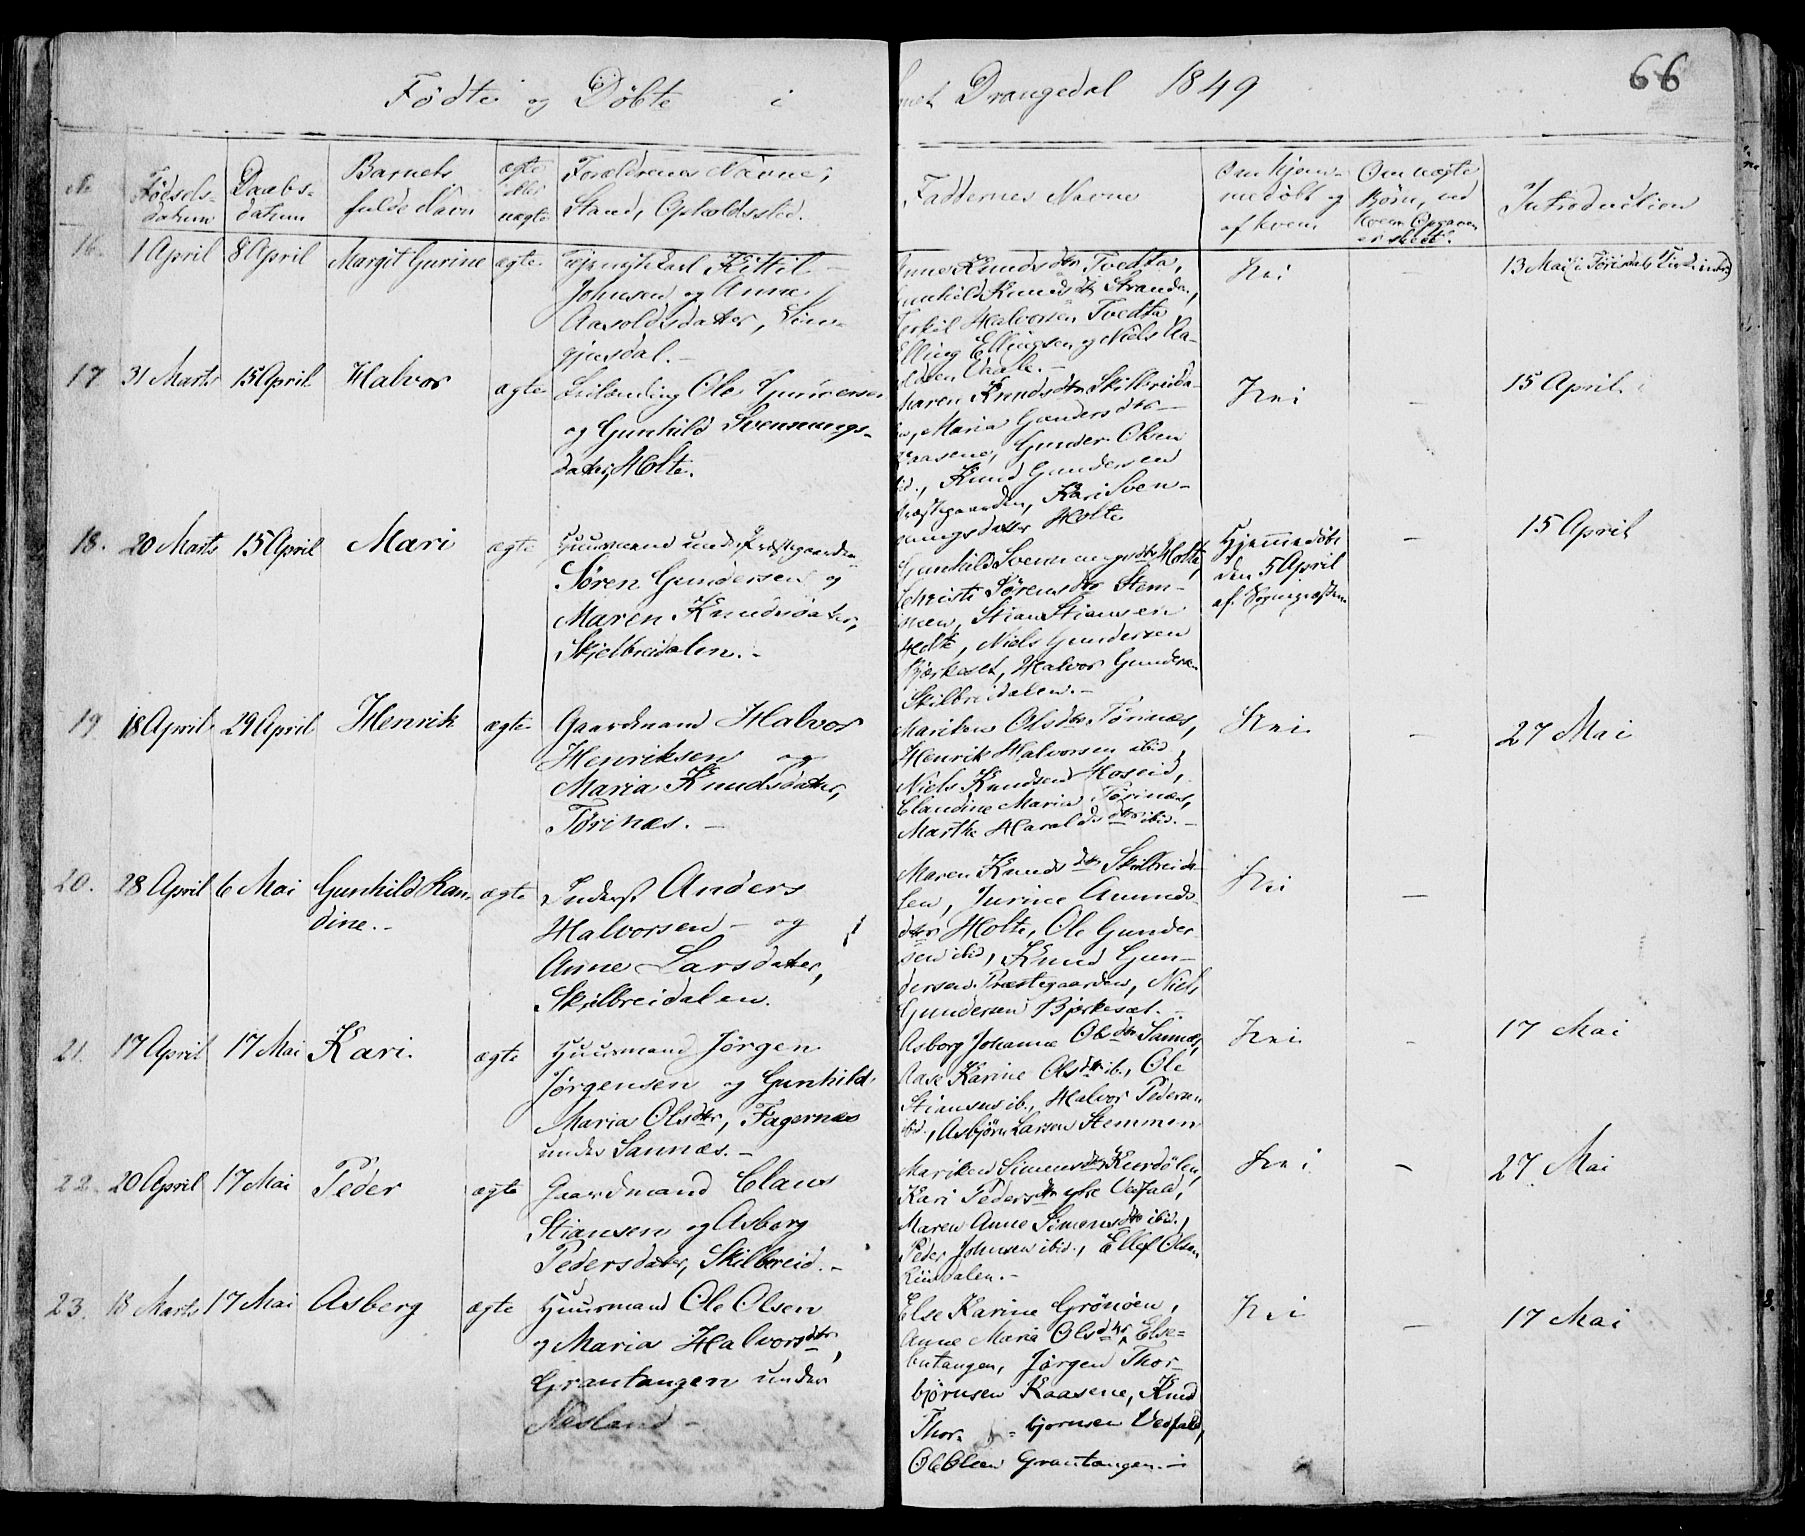 Födte og Döbte i
Drangedal 1849
66
No
Fødsels-
datum
Daabs-
datum
Barnets
fulde Navn
ægte
eller
uægte
Forældrenes Navne,
Stand, Opholdssted.
Faddernes Navne
Om hjem-
medöbt og
af hvem
Om uægte
Børn, ved
hvem Opgaven
er skeet.
Introduction
16. 1 April 8 April Margit Gurine ægte
Kittil
Johnsen og Anne
Aasoldsdatter,
gjusdal.-
Anne Knudsdtr Tvedta,
Gunhild Knudsdtr Stranda,
Terkil Halvorsen Tvedta
Elling Ellingsen og Niels Aa-
Nei
-
13 Mai i Törisdals
17 31 Marts 15 April Halvor ægte
Leilænding Ole Gundersen
og Gunhild Svennungs-
datter, Holte.
Maren Knudsdtr Skilbreida-
len, Maria Gundersdtr
Kaasene, Gunder Olsen
ibid., Knud Gundersen
Præstegaarden, Kari Sven-
nungsdatter Holte
Nei
-
15 April
18. 20 Marts 15 April Mari ægte
Huusmand under Præstegaarden
Søren Gundersen og
Maren Knudsdatter,
Skjelbreidalen.-
Gunhild Svennungsdtr Holte,
Christi Sörensdtr Stem-
men, Stian Stiansen
Holte, Niels Gundersen
Bjerkeset, Halvor Gundersen
Skilbreidalen.-
Hjemmedöbt
den 5 April
af Sognepræsten
-
15 April
19 18 April 29 April Henrik ægte
Gaardmand Halvor
Henriksen og
Maria Knudsdatter,
Törinæs.-
Mariken Olsdtr Törinæs,
Henrik Halvorsen ibid,
Niels Knudsen Moseid,
Claudine Maria Törinæs,
Marthe Haraldsdtr ibid.-
Nei
-
27 Mai
20. 28 April 6 Mai Gunhild Kan-
dine.- ægte
Inderst Anders
Halvorsen - og
Anne Larsdatter,
Skjelbreidalen.
Maren Knudsdtr Skilbreida-
len, Jurine Aamunds-
dtr Holte, Ole Gunder-
sen ibid, Knud Gun-
dersen Præstegaarden, Niels
Gundersen Bjerkesæt.-
Nei
-
21. 17 April 17 Mai Kari. ægte
Huusmand Jörgen
Jørgensen og Gunhild
Maria Olsdtr, Fagernæs
under Sannæs.-
Asborg Johanne Olsdtr Sannæs,
Aase Karine Olsdtr ib., Ole
Stiansen ib., Halvor Pedersen
ibd., Asbjörn Larsen Stemmen
Nei
-
17 Mai
22. 20 April 17 Mai Peder ægte
Gaardmand Claus
Stiansen og Asborg
Pedersdatter, Skilbreid.-
Mariken Simensdtr Kurdölen,
Kari Pedersdtr ytre Vefald,
Maren Anne Simensdtr ibid.,
Peder Johnsen ibid., Ellef Olsen
Liindalen.-
Nei
-
27 Mai
23. 18 Marts 17 Mai Asberg ægte
Huusmand Ole Olsen
og Maria Halvorsdtr,
Grantangen under
Nesland -
Else Karine Grönöen,
Anne Maria Olsdtr, Else-
butangen, Jörgen Thor-
björnsen Kaasene, Knud
Thor- björnsen Vefald,
Ole Olsen Grantangen.-
Nei
-
17 Mai